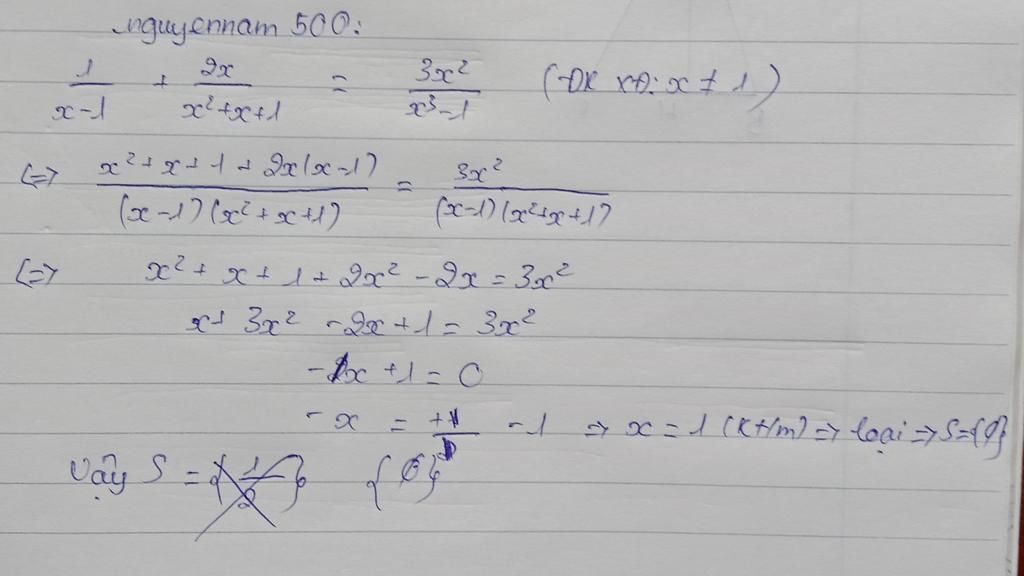 nguyennam 500:
1/(x-1) + 2x/(x²+x+1) = 3x²/(x³-1) (ĐK XĐ: x ≠ 1)
<=> (x²+x+1+2x(x-1))/((x-1)(x²+x+1)) = 3x²/((x-1)(x²+x+1))
<=> x²+x+1+2x²-2x=3x²
x+3x²-2x+1=3x²
-x+1=0
-x = -1 => x=1 (ktm) => loại => S={∅}
Vậy S = {∅}